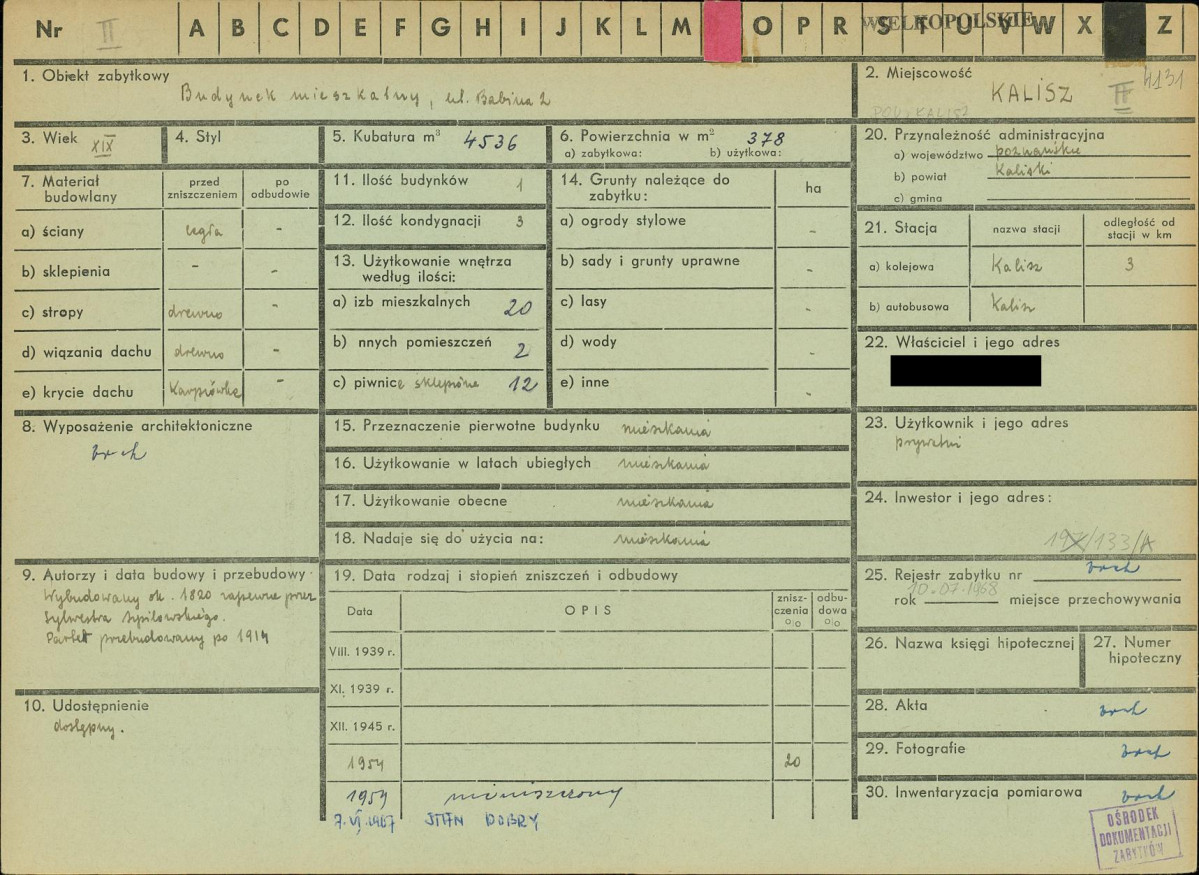 Nr II A B C D E F G H I J K L M O P R S T U V W X Z
WIELKOPOLSKIE
1. Obiekt zabytkowy
Budynek mieszkalny, ul. Babina 2
2. Miejscowość
KALISZ II 4131
POW. KALISZ
3. Wiek XIX
4. Styl
5. Kubatura m³ 4536
6. Powierzchnia w m² 378
a) zabytkowa: b) użytkowa:
20. Przynależność administracyjna
a) województwo poznańskie
b) powiat Kaliski
c) gmina
7. Materiał budowlany
przed zniszczeniem
po odbudowie
a) ściany cegła -
b) sklepienia - -
c) stropy drewno -
d) wiązania dachu drewno -
e) krycie dachu Karpiówka -
11. Ilość budynków 1
12. Ilość kondygnacji 3
13. Użytkowanie wnętrza według ilości:
a) izb mieszkalnych 20
b) nnych pomieszczeń 2
c) piwnice sklepione 12
14. Grunty należące do zabytku:
ha
a) ogrody stylowe -
b) sady i grunty uprawne -
c) lasy -
d) wody -
e) inne -
21. Stacja
nazwa stacji
odległość od stacji w km
a) kolejowa Kalisz 3
b) autobusowa Kalisz
22. Właściciel i jego adres
8. Wyposażenie architektoniczne
brak
15. Przeznaczenie pierwotne budynku mieszkania
16. Użytkowanie w latach ubiegłych mieszkania
17. Użytkowanie obecne mieszkania
18. Nadaje się do użycia na: mieszkania
23. Użytkownik i jego adres
prywatni
24. Inwestor i jego adres:
/133/A
9. Autorzy i data budowy i przebudowy
Wybudowany ok. 1820 zapewne przez
Sylwestra Szpilowskiego.
Parter przebudowany po 1914
19. Data rodzaj i stopień zniszczeń i odbudowy
Data
OPIS
znisz-czenia %
odbu-dowa %
VIII. 1939 r.
XI. 1939 r.
XII. 1945 r.
1954 20
1959 niezniszczony
7.VI.1967 STAN DOBRY
25. Rejestr zabytku nr brak
10.07.1968
rok miejsce przechowywania
26. Nazwa księgi hipotecznej
27. Numer hipoteczny
10. Udostępnienie
dostępny.
28. Akta brak
29. Fotografie brak
30. Inwentaryzacja pomiarowa brak
OŚRODEK
DOKUMENTACJI
ZABYTKÓW